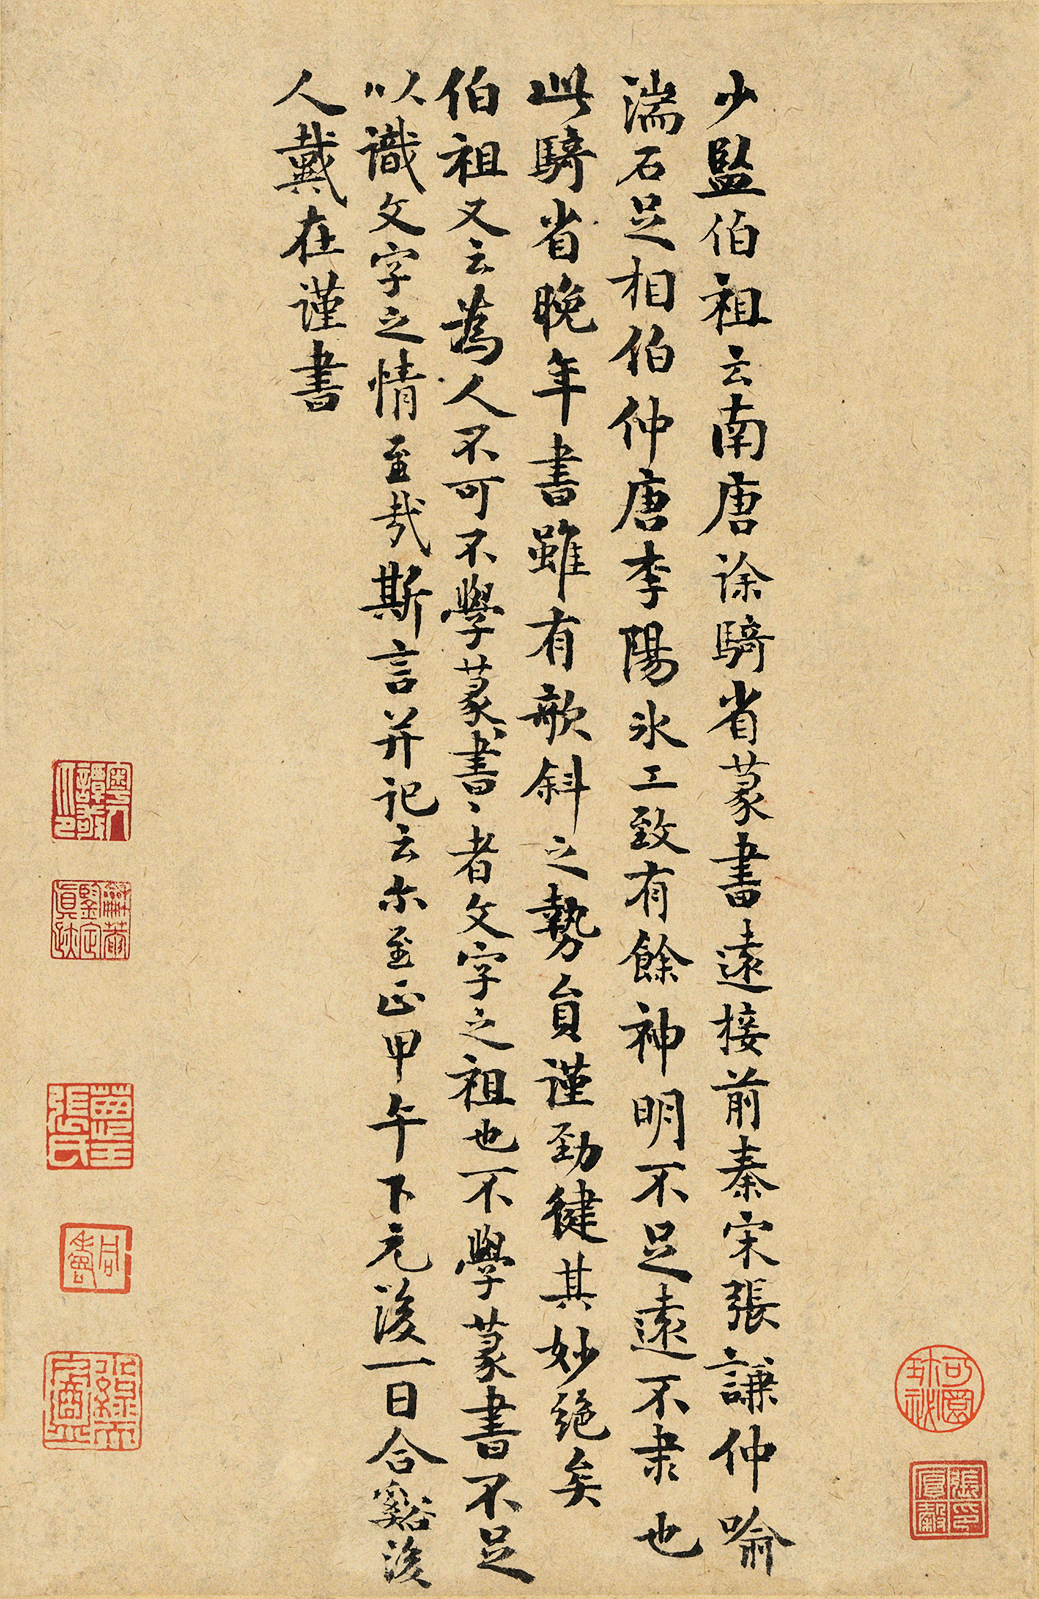 少監伯祖云南唐徐騎省篆書遠接前秦宋張謙仲喻
湍石足相伯仲唐李陽冰工致有餘神明不足遠不隶也
此騎省晚年書雖有欹斜之勢貟謹勁健其妙絶矣
伯祖又云為人不可不學篆書〻者文字之祖也不學篆書不足
以識文字之情至哉斯言并記云尒至正甲午下元後一日合谿後
人戴在謹書
可園珍祕
張氏